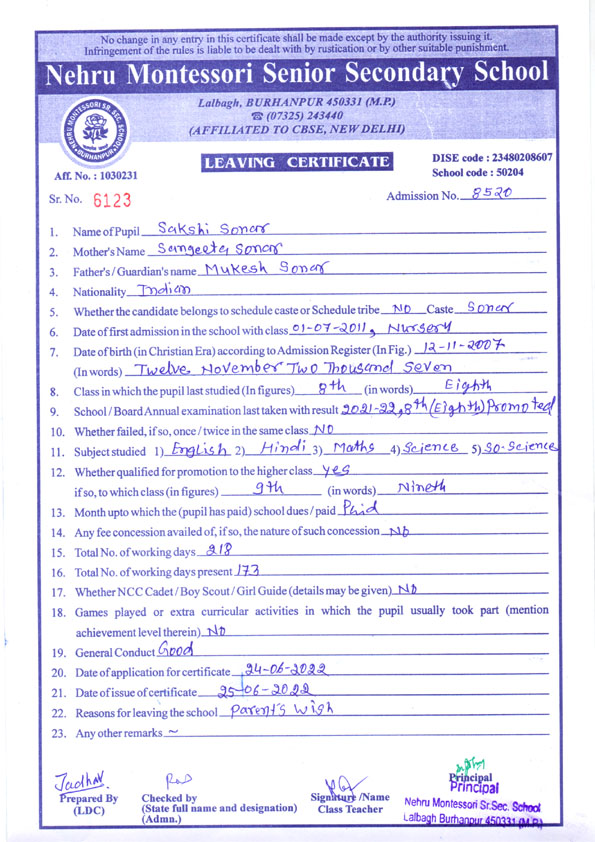 No change in any entry in this certificate shall be made except by the authority issuing it.
Infringement of the rules is liable to be dealt with by rustication or by other suitable punishment.
Nehru Montessori Senior Secondary School
Lalbagh, BURHANPUR 450331 (M.P.)
☎ (07325) 243440
(AFFILIATED TO CBSE, NEW DELHI)
NEHRU MONTESSORI SR. SEC. SCHOOL
BURHANPUR
LEAVING CERTIFICATE
DISE code : 23480208607
School code : 50204
Aff. No. : 1030231
Sr. No. 6123
Admission No. 8520
1. Name of Pupil Sakshi Sonar
2. Mother's Name Sangeeta Sonar
3. Father's / Guardian's name Mukesh Sonar
4. Nationality Indian
5. Whether the candidate belongs to schedule caste or Schedule tribe NO Caste Sonar
6. Date of first admission in the school with class 01-07-2011, Nursery
7. Date of birth (in Christian Era) according to Admission Register (In Fig.) 12-11-2007
(In words) Twelve November Two Thousand Seven
8. Class in which the pupil last studied (In figures) 8th (in words) Eighth
9. School / Board Annual examination last taken with result 2021-22, 8th (Eighth) Promoted
10. Whether failed, if so, once / twice in the same class NO
11. Subject studied 1) English 2) Hindi 3) Maths 4) Science 5) So-Science
12. Whether qualified for promotion to the higher class yes
if so, to which class (in figures) 9th (in words) Nineth
13. Month upto which the (pupil has paid) school dues / paid Paid
14. Any fee concession availed of, if so, the nature of such concession NO
15. Total No. of working days 218
16. Total No. of working days present 173
17. Whether NCC Cadet / Boy Scout / Girl Guide (details may be given) NO
18. Games played or extra curricular activities in which the pupil usually took part (mention
achievement level therein) NO
19. General Conduct Good
20. Date of application for certificate 24-06-2022
21. Date of issue of certificate 25-06-2022
22. Reasons for leaving the school Parent's Wish
23. Any other remarks ~
Jadhav
Prepared By
(LDC)
Checked by
(State full name and designation)
(Admn.)
Signature /Name
Class Teacher
Principal
Principal
Nehru Montessori Sr.Sec. School
Lalbagh Burhanpur 450331 (M.P.)